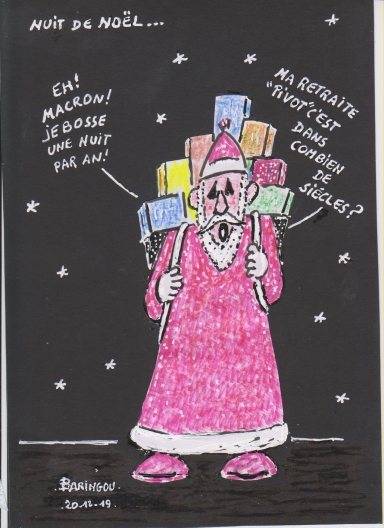 NUIT DE NOËL...
EH!
MACRON!
JE BOSSE
UNE NUIT
PAR AN!
MA RETRAITE
"PIVOT" C'EST
DANS
COMBIEN
DE
SIÈCLES?
BARINGOU.
20-12-19.